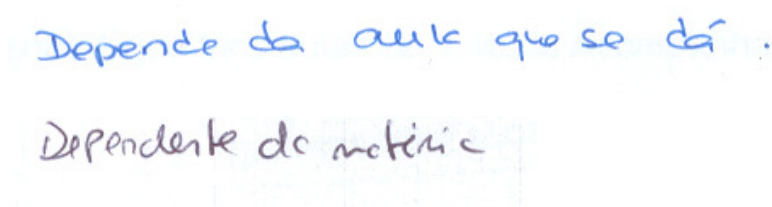 Depende da aula que se dá.
Dependente da matéria